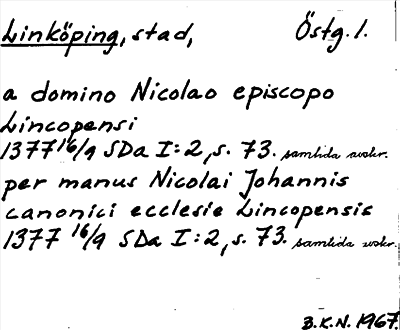 Linköping, stad, Östg. l.
a domino Nicolao episcopo
Lincopensi
1377 16/9 SDa I:2, s. 73. samtida avskr.
per manus Nicolai Johannis
canonici ecclesie Lincopensis
1377 16/9 SDa I:2, s. 73. samtida avskr.
B.K.N. 1967.